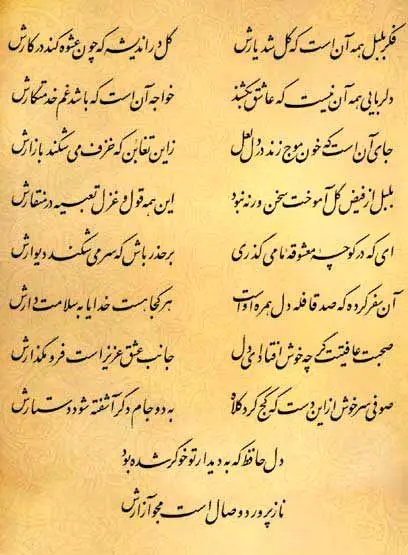 فکر بلبل همه آن است که گل شد یارش گل در اندیشه که چون عشوه کند در کارش
دلربایی همه آن نیست که عاشق بکشند خواجه آن است که باشد غم خدمتگارش
جای آن است که خون موج زند در دل لعل زین تغابن که خزف می شکند بازارش
بلبل از فیض گل آموخت سخن ورنه نبود این همه قول و غزل تعبیه در منقارش
ای که در کوچه معشوقه ما می گذری بر حذر باش که سر می شکند دیوارش
آن سفر کرده که صد قافله دل همره اوست هر کجا هست خدایا به سلامت دارش
صحبت عافیتت گر چه خوش افتاد ای دل جانب عشق عزیز است فرو مگذارش
صوفی سرخوش از این دست که کج کرد کلاه به دو جام دگر آشفته شود دستارش
دل حافظ که به دیدار تو خوگر شده بود
نازپرورد وصال است مجو آزارش